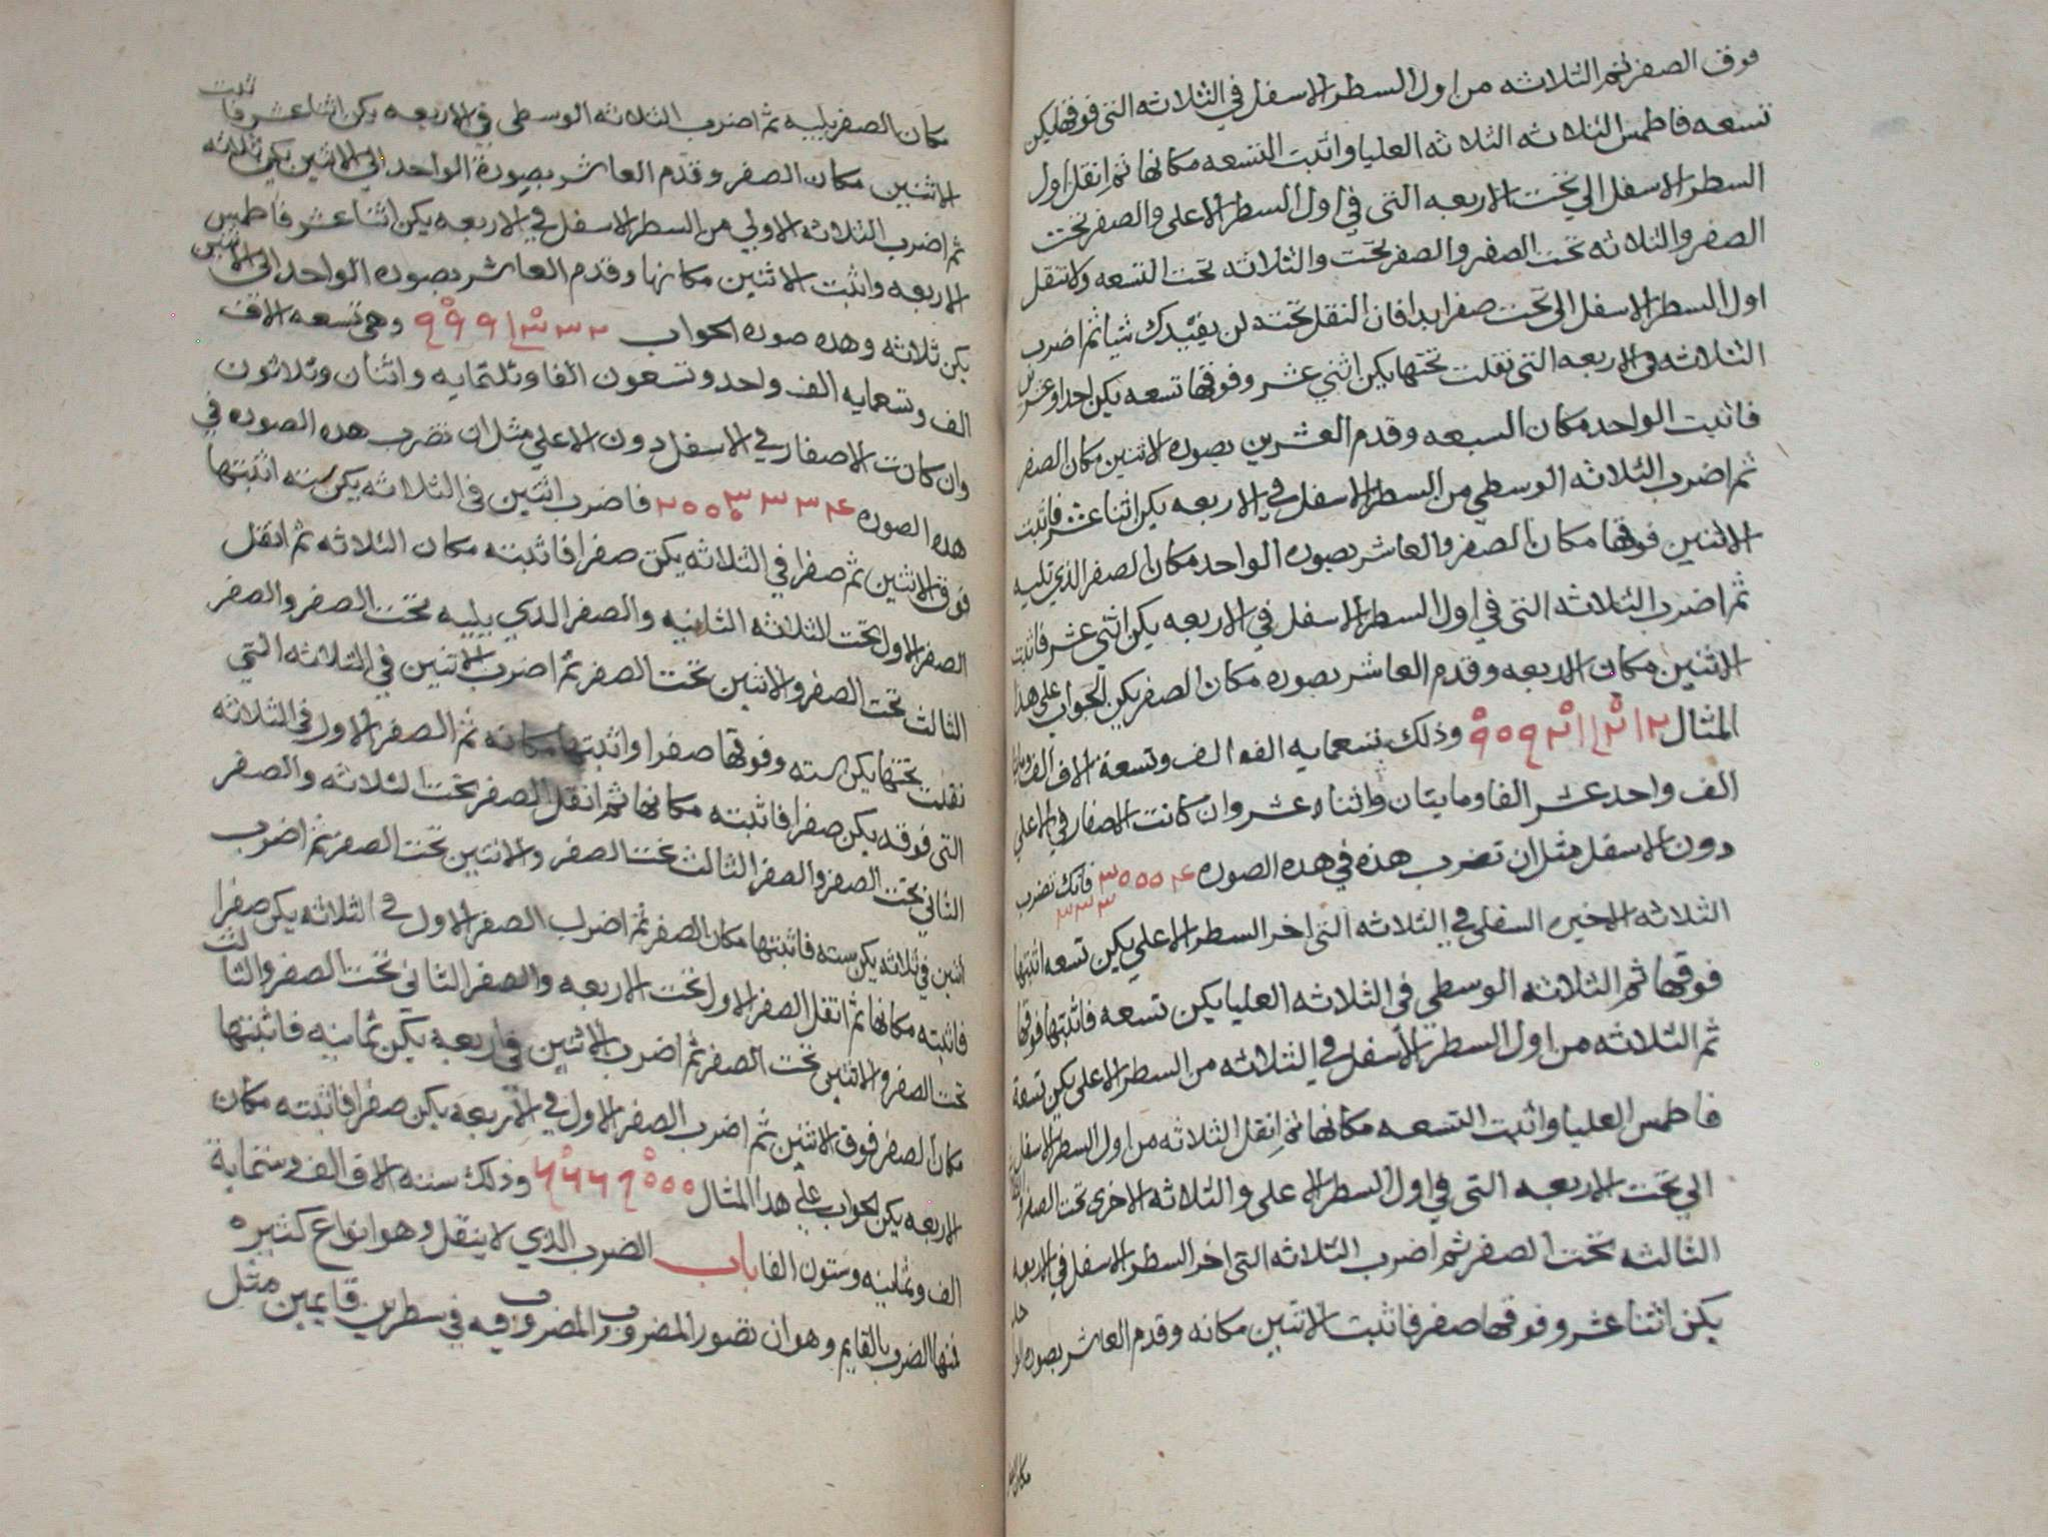 فوق الصفر ثم الثلاثه من اول السطر الاسفل في الثلاثه التي فوقها يكن
تسعه فاطمس الثلاثه الثلاثه العليا واثبت التسعه مكانها ثم انقل اول
السطر الاسفل الي تحت الاربعه التي في اول السطر الاعلى والصفر تحت
الصفر والثلاثه تحت الصفر والصفر تحت والثلاثه تحت التسعه ولا تنقل
اول السطر الاسفل الى تحت صفر ابدا فان النقل تحته لن يفيدك شيا ثم اضرب
الثلاثه في الاربعه التي نقلت تحتها يكن اثني عشر وفوقها تسعه يكن احدا وعشرين
فاثبت الواحد مكان السبعه وقدم العشرين بصوره الاثنين مكان الصفر
ثم اضرب الثلاثه الوسطي من السطر الاسفل في الاربعه يكن اثنا عشر فاثبت
الاثنين فوقها مكان الصفر والعاشر بصوره الواحد مكان الصفر الذي تليه
ثم اضرب الثلاثه التي في اول السطر الاسفل في الاربعه يكن اثني عشر فاثبت
الاثنين مكان الاربعه وقدم العاشر بصوره مكان الصفر يكن الجواب على هذا
المثال ٩٠٩٢١١٢١٢ وذلك تسعمايه الف الف وتسعة الاف الف
الف واحد عشر الفا ومايتان واثناء عشر وان كانت الاصفار في الاعلي
دون الاسفل مثل ان تضرب هذه في هذه الصوره ٣٠٠٠٤ فانك تضرب
٣٣٣
الثلاثه الاخيره السفلى في الثلاثه التي اخر السطر الاعلي يكن تسعه اثبتها
فوقها ثم الثلاثه الوسطي في الثلاثه العليا يكن تسعه فاثبتها فوقها
ثم الثلاثه من اول السطر الاسفل في الثلاثه من السطر الاعلى يكن تسعة
فاطمس العليا واثبت التسعه مكانها ثم انقل الثلاثه من اول السطر الاسفل
الي تحت الاربعه التي في اول السطر الاعلى والثلاثه الاخرى تحت الصفر
الثالثه تحت الصفر ثم اضرب الثلاثه التي اخر السطر الاسفل في الاربعه
يكن اثنا عشر وفوقها صفر فاثبت الاثنين مكانه وقدم العاشر بصوره
مكان
مكان الصفر يليه ثم اضرب الثلاثه الوسطى في الاربعه يكن اثنا عشر فاثبت
الاثنين مكان الصفر وقدم العاشر بصورة الواحد الي الاثنين يكن ثلاثه
ثم اضرب الثلاثه الاولي من السطر الاسفل في الاربعه يكن اثنا عشر فاطمس
الاربعه واثبت الاثنين مكانها وقدم العاشر بصوره الواحد الى الاثنين
يكن ثلاثه وهذه صوره الجواب ٩٩٩١٣٣٢ وهي تسعه الاف
الف وتسعمايه الف واحد وتسعون الفا وثلثمايه واثنان وثلاثون
وان كانت الاصفار في الاسفل دون الاعلي مثل ان تضرب هذه الصوره في
هذه الصوره ٢٠٠٠٣٣٣٤ فاضرب اثنين في الثلاثه يكن سته اثبتها
فوق الاثنين ثم صفرا في الثلاثه يكن صفرا فاثبته مكان الثلاثه ثم انقل
الصفر الاول تحت الثلاثه الثانيه والصفر الذي يليه تحت الصفر والصفر
الثالث تحت الصفر والاثنين تحت الصفر ثم اضرب الاثنين في الثلاثه التي
نقلت تحتها يكن سته وفوقها صفرا واثبتها مكانه ثم الصفر الاول في الثلاثه
التي فوقه يكن صفرا فاثبته مكانها ثم انقل الصفر تحت الثلاثه والصفر
الثاني تحت الصفر والصفر الثالث تحت الصفر والاثنين تحت الصفر ثم اضرب
اثنين في ثلاثه يكن سته فاثبتها مكان الصفر ثم اضرب الصفر الاول في الثلاثه يكن صفرا
فاثبته مكانها ثم انقل الصفر الاول تحت الاربعه والصفر الثاني تحت الصفر والثالث
تحت الصفر والاثنين تحت الصفر ثم اضرب الاثنين في اربعه يكن ثمانيه فاثبتها
مكان الصفر فوق الاثنين ثم اضرب الصفر الاول في الاربعه يكن صفرا فاثبته مكان
الاربعه يكن الجواب على هذا المثال ٦٦٦٨٠٠٠ وذلك سته الاف الف وستماية
الف وثمنيه وستون الفا باب الضرب الذي لا ينقل وهو انواع كثيره
منها الضرب بالقايم وهو ان تصور المضروب والمضروب فيه في سطرين قايمين مثل